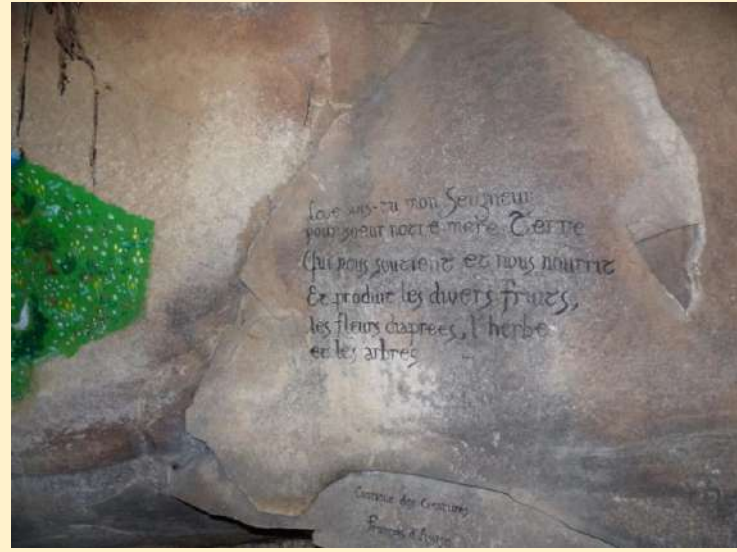 Loué sois-tu mon Seigneur
pour soeur notre mère Terre
Qui nous soutient et nous nourrit
Et produit les divers fruits,
les fleurs diaprées, l'herbe
et les arbres
Cantique des Créatures
François d'Assise